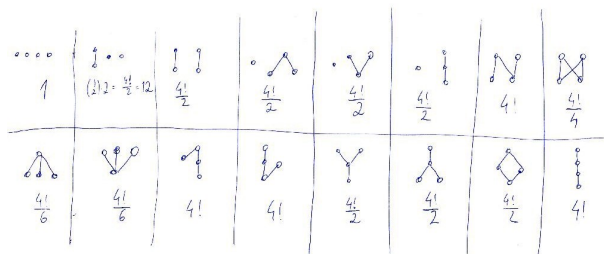 1
(4/2)2 = 4!/2 = 12
4!/2
4!/2
4!/2
4!/2
4!
4!/4
4!/6
4!/6
4!
4!
4!/2
4!/2
4!/2
4!